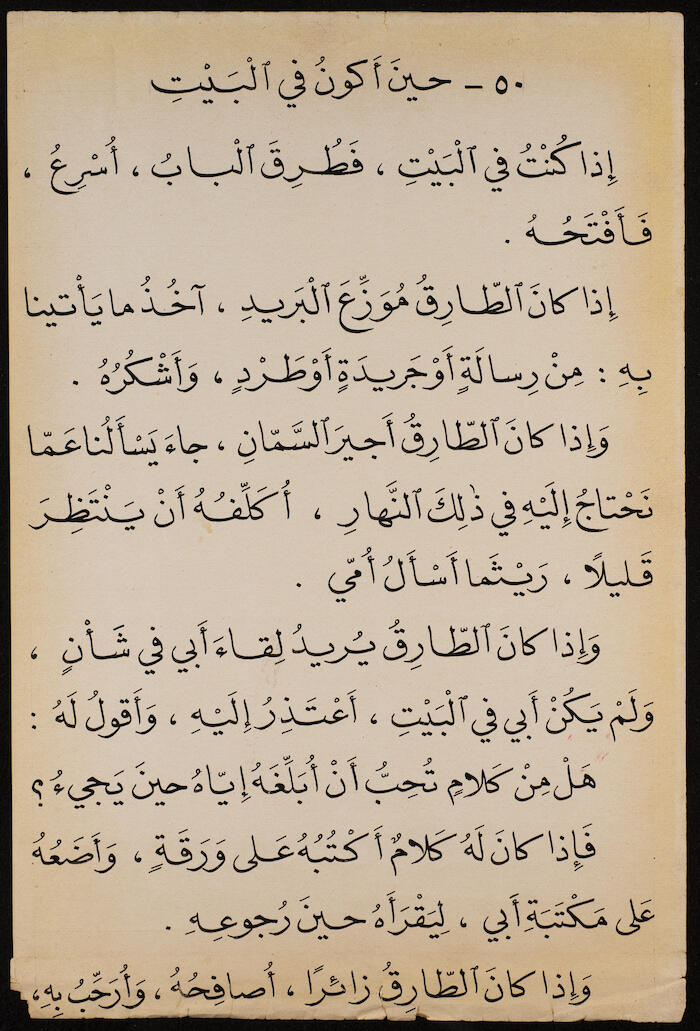 ٥٠ - حينَ أَكونُ في ٱلْبَيْتِ
إِذا كُنْتُ في ٱلْبَيْتِ ، فَطُرِقَ ٱلْبابُ ، أُسْرِعُ ،
فَأَفْتَحُهُ .
إِذا كانَ ٱلطّارِقُ مُوَزِّعَ ٱلْبَريدِ ، آخُذُ ما يَأْتينا
بِهِ : مِنْ رِسالَةٍ أَوْ جَريدَةٍ أَوْ طَرْدٍ ، وَأَشْكُرُهُ .
وَإِذا كانَ ٱلطّارِقُ أَجيرَ ٱلسَّمّانِ ، جاءَ يَسْأَلُنا عَمّا
نَحْتاجُ إِلَيْهِ في ذٰلِكَ ٱلنَّهارِ ، أُكَلِّفُهُ أَنْ يَنْتَظِرَ
قَليلًا ، رَيْثَما أَسْأَلُ أُمّي .
وَإِذا كانَ ٱلطّارِقُ يُريدُ لِقاءَ أَبي في شَأْنٍ ،
وَلَمْ يَكُنْ أَبي في ٱلْبَيْتِ ، أَعْتَذِرُ إِلَيْهِ ، وَأَقولُ لَهُ :
هَلْ مِنْ كَلامٍ تُحِبُّ أَنْ أُبَلِّغَهُ إِيّاهُ حينَ يَجيءُ ؟
فَإِذا كانَ لَهُ كَلامٌ أَكْتُبُهُ عَلى وَرَقَةٍ ، وَأَضَعُهُ
عَلى مَكْتَبَةِ أَبي ، لِيَقْرَأَهُ حينَ رُجوعِهِ .
وَإِذا كانَ ٱلطّارِقُ زائِرًا ، أُصافِحُهُ ، وَأُرَحِّبُ بِهِ،